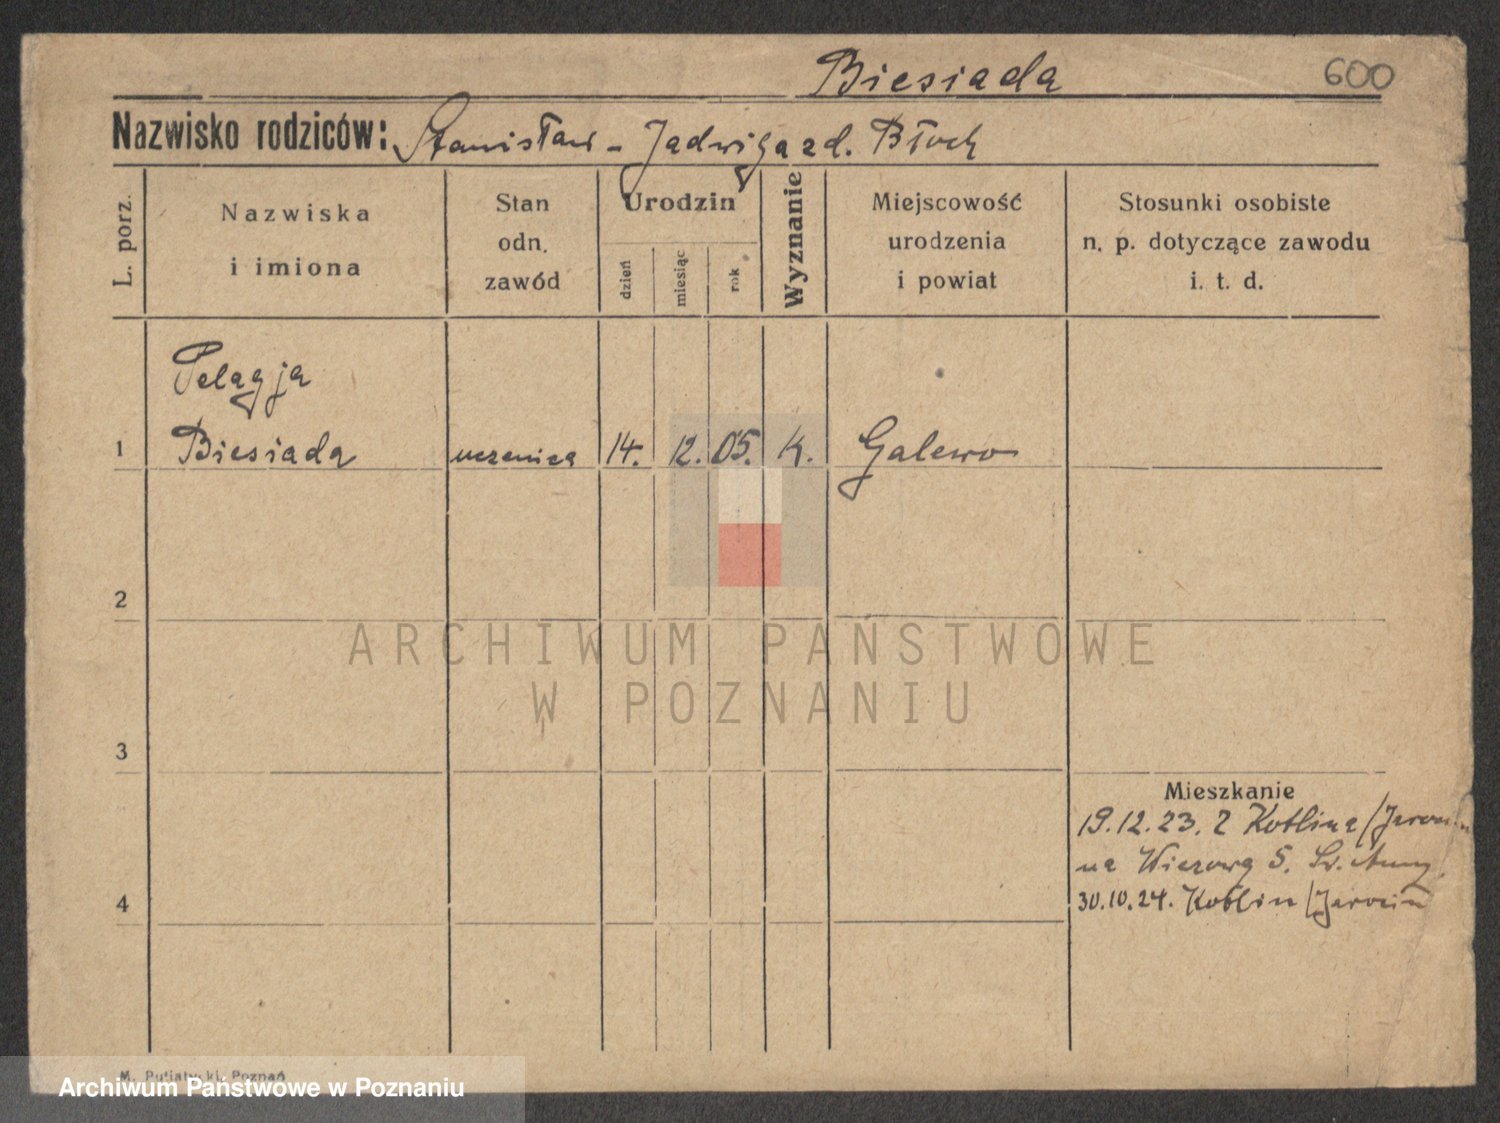 Biesiada
600
Nazwisko rodziców: Stanisław – Jadwiga zd. Błoch
L. porz.
Nazwiska
i imiona
Stan
odn.
zawód
Urodzin
dzień
miesiąc
rok
Wyznanie
Miejscowość
urodzenia
i powiat
Stosunki osobiste
n. p. dotyczące zawodu
i. t. d.
Pelagja
1 Biesiada uczenica 14. 12. 05. K. Galewo
2
ARCHIWUM PAŃSTWOWE
W POZNANIU
3
Mieszkanie
19.12.23. z Kotlina /Jarocin
na 5. Św.
4
30.10.24. Kotlin /Jarocin
M. Putiatycki, Poznań
Archiwum Państwowe w Poznaniu